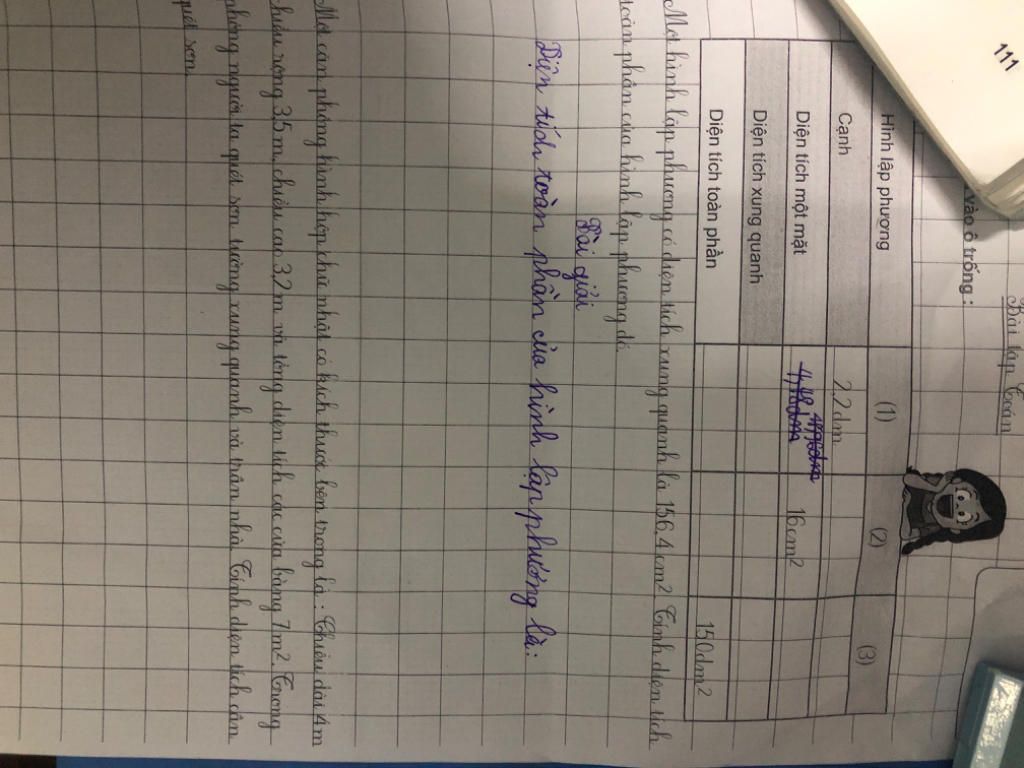 111
Bài tập Toán
vào ô trống :
Hình lập phương (1) (2) (3)
Cạnh 2,2 dm
Diện tích một mặt 16cm2
Diện tích xung quanh
Diện tích toàn phần 150dm2
Một hình lập phương có diện tích xung quanh là 156,4 cm2 Tính diện tích
toàn phần của hình lập phương đó
Bài giải
Diện tích toàn phần của hình lập phương là:
Một căn phòng hình hộp chữ nhật có kích thước bên trong là : Chiều dài 4m
chiều rộng 3,5 m, chiều cao 3,2 m và tổng diện tích các cửa bằng 7m2. Trong
phòng người ta quét sơn tường xung quanh và trần nhà. Tính diện tích cần
quét sơn.